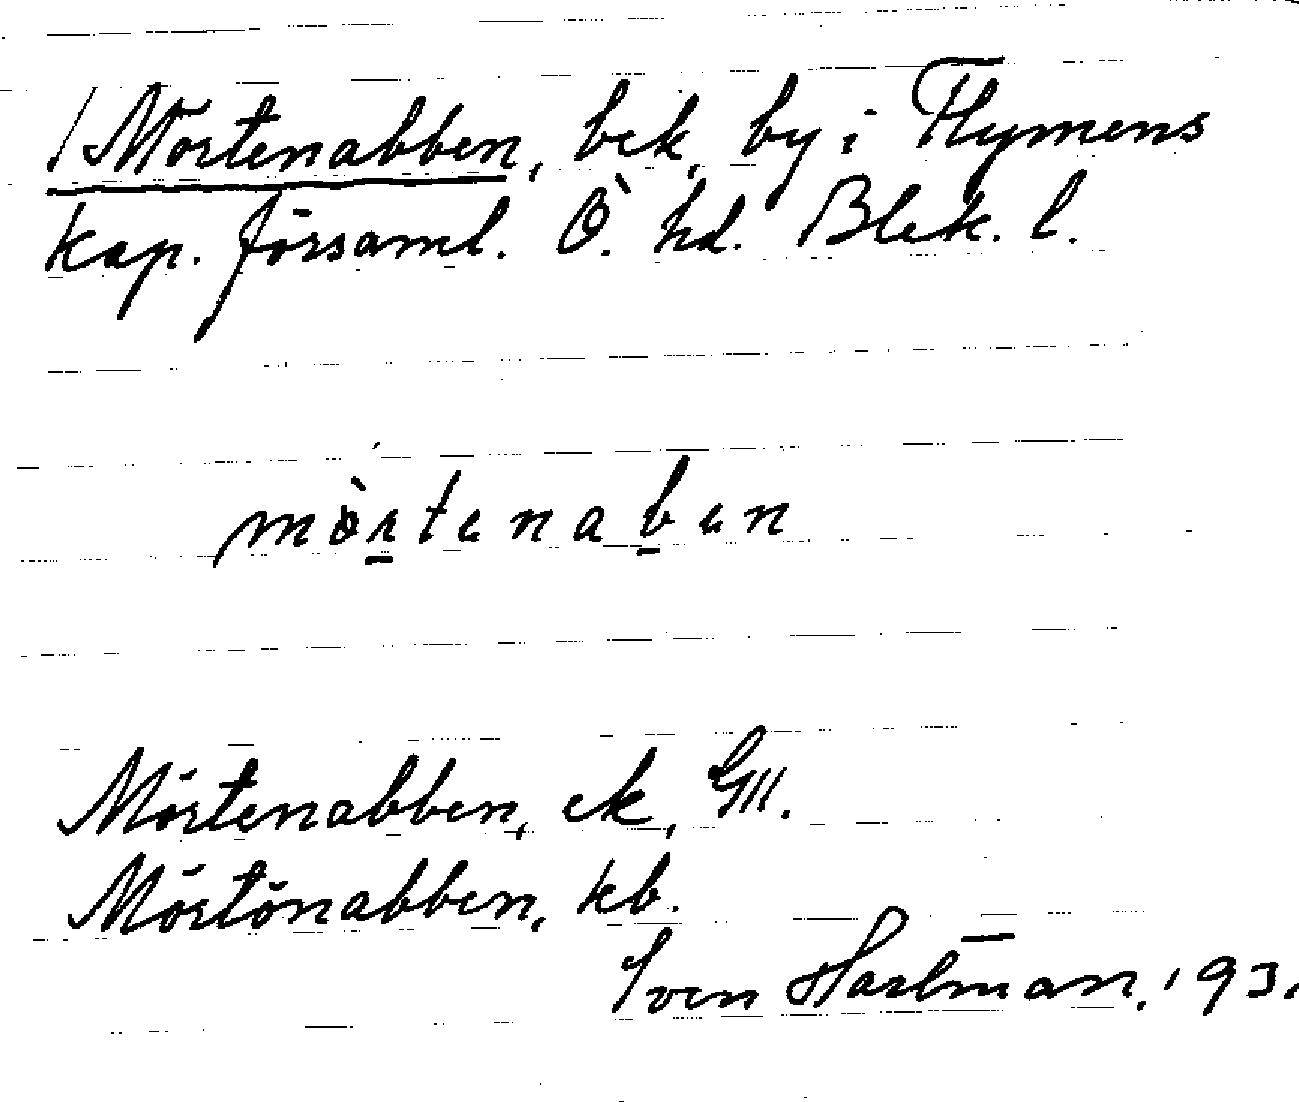 Mörtenabben, bek. by i Flymens
kap. församl. Ö. hd. Blek. l.
mòrtenaben
Mörtenabben, ek, GIII.
Mörtönabben, kb.
Sven Harlman, 193.